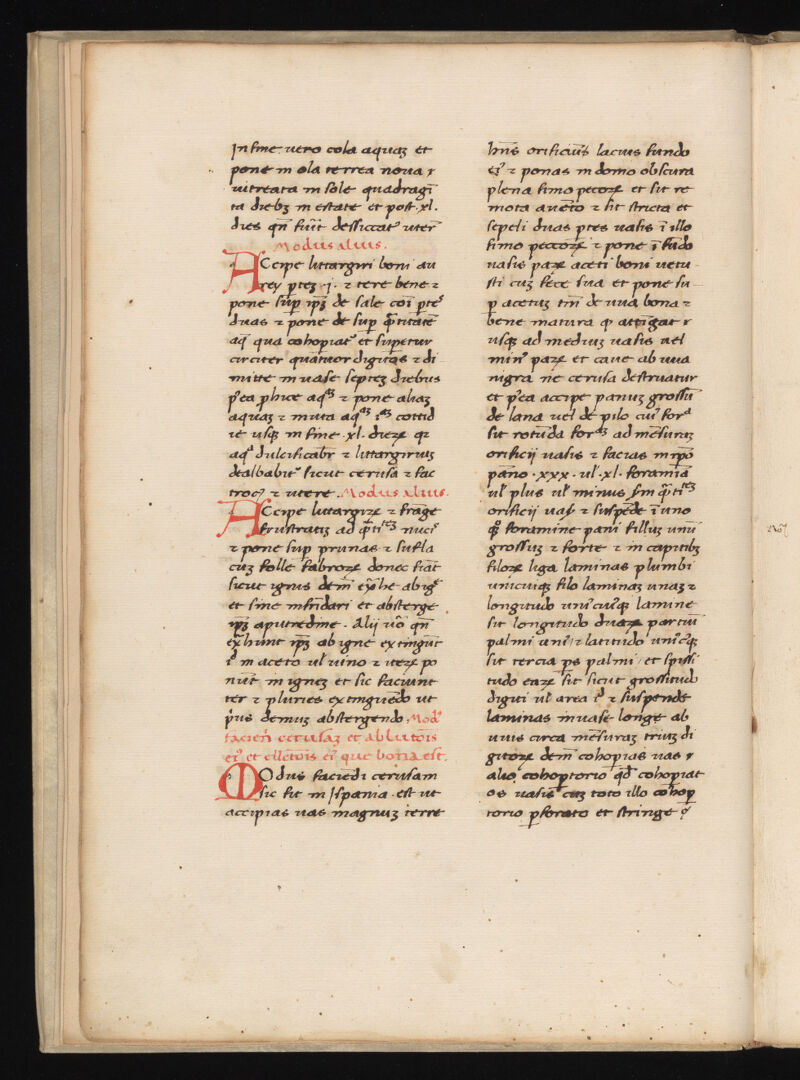 In fine uero cola aquaʒ et
pone in ola terrea noua ⁊
uitreata in sole quadragī
ta diebꝫ in estate et post .xl.
dies qñ fuīt dessiccat᷑ uter᷑
Modus alius.
ACcipe littargiri boni au
rey pteʒ .j. ⁊ tere bene ⁊
pone suꝑ ipʒ de sale coī pte᷑
duas ⁊ pone de suꝑ q̄titatē
aq̄ qua cohopiat᷑ et superetur
circiter quatuor digitos ⁊ di
mitte in uase septeʒ diebus
p̄ea ꝓhice aqᵃʒ ⁊ pone aliaʒ
aquaʒ ⁊ muta aqᵃʒ cottid
ie usqʒ in fine .xl. dieꝝ qꝛ
aqᵃ dulcificabr̄ ⁊ littargiruʒ
dealbabit᷑ sicut cerusa ⁊ fac
troc᷑ ⁊ utere. Modus alius.
ACcipe litargirꝫ ⁊ frāge
frustratiʒ ad q̄titᵉʒ nuc᷑
⁊ pone suꝑ prunas ⁊ sufla
cuʒ folle fabroꝝ donec fiāt
sicut ignis deīn ex̄he ab ig᷑
et sine infrīdari et absterge
ipʒ a putredine. Alij uō qñ
ex̄hunt ipʒ ab igne extingūt
in aceto ul᷑ uino ⁊ iteꝝ po
nūt in igneʒ et sic faciunt
ter ⁊ pluries extinguēdo ut
p̄us demuʒ abstergendo. Mod᷑
faciēn cerusaʒ et ablutōis
ei᷑ et ellectōis ei᷑ que bona est.
MOdus faciēdi cerusam
sic fit in Ispania. est ut
accipias uas magnuʒ terre
hn̄s orificiūs lacius fundo
ei᷑ ⁊ ponas in domo obscura
plena fimo pecoꝝ et sit re
mota a uēto ⁊ sit stricta et
sepeli duas ptes uasis ī illo
fimo peccoꝝ ⁊ pone ī fūdo
uasis paꝝ aceti boni uetu
sti cuʒ fece sua et pone su
ꝑ acetuʒ tm̄ de uua bona ⁊
bene matura ꝙ attigat ⁊
usqʒ ad mediuʒ uasis uel
min᷑ paꝝ et caue ab uua
nigra ne cerusa destruatur
et p̄ea accipe panuʒ grossū
de lana uel de pilo cui᷑ forᵃ
sit rotūda forᵃʒ ad mēsuraʒ
orificij uasis ⁊ facias in ip̄o
pāno .xxx. ul᷑ .xl. foramīa
ul᷑ plus ul᷑ minus s̄m q̄titᵉʒ
orificij uas᷑ ⁊ suspēde ī uno
qʒ foramine pani fillus unū
grossuʒ ⁊ forte ⁊ in capitibꝫ
filoꝝ liga laminas plumbi
unicuiqʒ filo laminaʒ unaʒ ⁊
longitudo uni᷑cuiusqʒ lamine
sit longitudo duaꝝ partiū
palmi uni᷑ ⁊ latitudo uni᷑cꝫ
sit tercia ps palmi et spissi
tudo eaꝝ sit sicut grossitudo
digiti ul᷑ area ⁊ suspende
laminas in uase longe ab
uuis circa mēsuraʒ triuʒ di
gitoꝝ deīn cohopias uas ⁊
alio cohoptorio qd̄ cohopiat
os uasis cuʒ toto illo cohoꝑ
torio ꝑforato et stringe